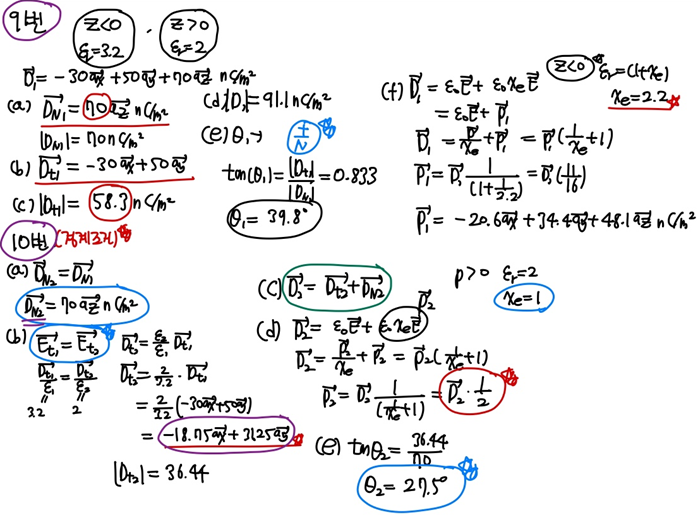 9번
z<0
εr=3.2
,
z>0
εr=2
D₁ = -30ax+50ay+70az nC/m²
(a) D_N1 = 70az nC/m²
|D_N1| = 70nC/m²
(b) Dt1 = -30ax+50ay
(c) |Dt1| = 58.3 nC/m²
(d) |D₁| = 91.1nC/m²
(e) θ₁→ t/N
tan(θ₁) = |Dt1|/|D_N1| = 0.833
θ₁ = 39.8°
z<0 εr=(1+χe)
χe=2.2
(f) D₁ = ε₀E + ε₀χeE
= ε₀E+P₁
D₁ = P₁/χe+P₁ = P₁(1/χe+1)
P₁ = D₁ 1/(1+1/2.2) = D₁(11/16)
P₁ = -20.6ax+34.4ay+48.1az nC/m²
10번 (경계조건)
(a) D_N2 = D_N1
D_N2 = 70az nC/m²
(b) Et1 = Et2
Dt1/ε₁ = Dt2/ε₂
3.2 2
Dt2 = ε₂/ε₁ Dt1
Dt2 = 2/3.2 · Dt1
= 2/3.2 (-30ax+50ay)
= -18.75ax+31.25ay
|Dt2| = 36.44
(c) D₂ = Dt2+D_N2
ρ>0 εr=2
χe=1
(d) D₂ = ε₀E+ε₀χeE P₂
D₂ = P₂/χe+P₂ = P₂(1/χe+1)
P₂ = D₂ 1/(1/χe+1) = D₂·1/2
(e) tanθ₂ = 36.44/70
θ₂ = 27.5°